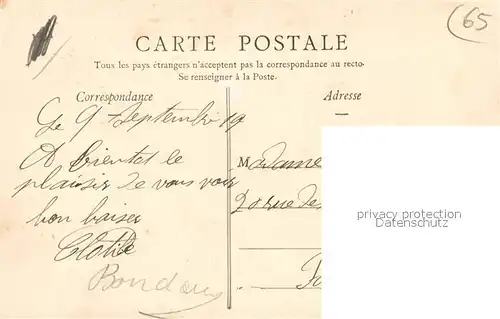 65
CARTE POSTALE
Tous les pays étrangers n'acceptent pas la correspondance au recto-
Se renseigner à la Poste.
Correspondance
Adresse
Le 9 Septembre 19
A bientot le
plaisir de vous voir
bon baiser
Clotilde
Madame
20 rue de
privacy protection
Datenschutz